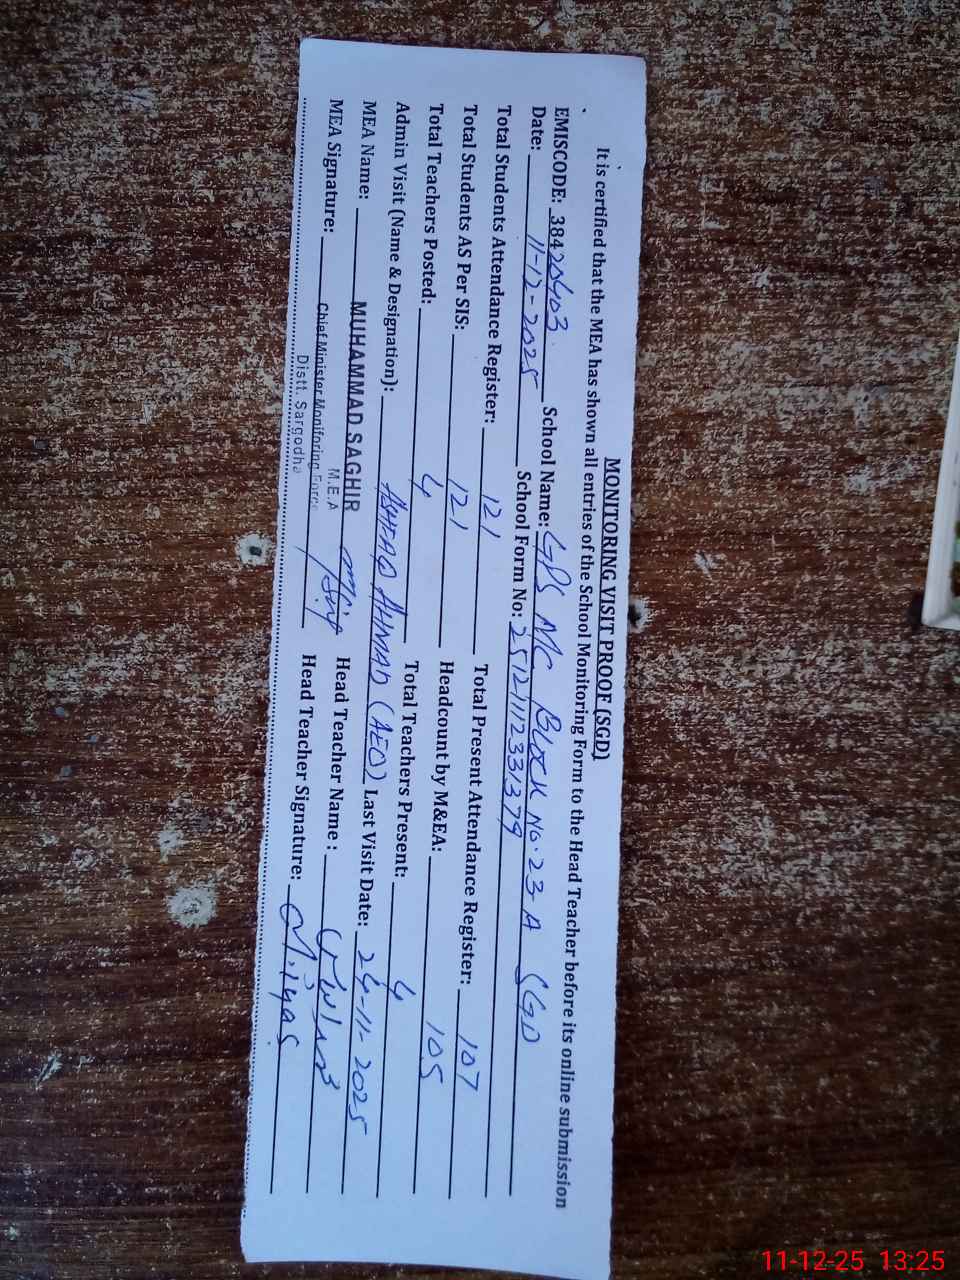 MONITORING VISIT PROOF (SGD)
It is certified that the MEA has shown all entries of the School Monitoring Form to the Head Teacher before its online submission
EMISCODE: 38420403 School Name: GPS MC BLOCK NO. 23 A SGD
Date: 11-12-2025 School Form No:
Total Students Attendance Register: 121 Total Present Attendance Register: 107
Total Students AS Per SIS: 121 Headcount by M&EA: 105
Total Teachers Posted: 4 Total Teachers Present: 4
Admin Visit (Name & Designation): ASHFAQ AHMAD (AEO) Last Visit Date: 24-11-2025
MEA Name: MUHAMMAD SAGHIR Head Teacher Name :
M.E.A
MEA Signature: Chief Minister Monitoring Force Head Teacher Signature:
Distt. Sargodha
11-12-25 13:25